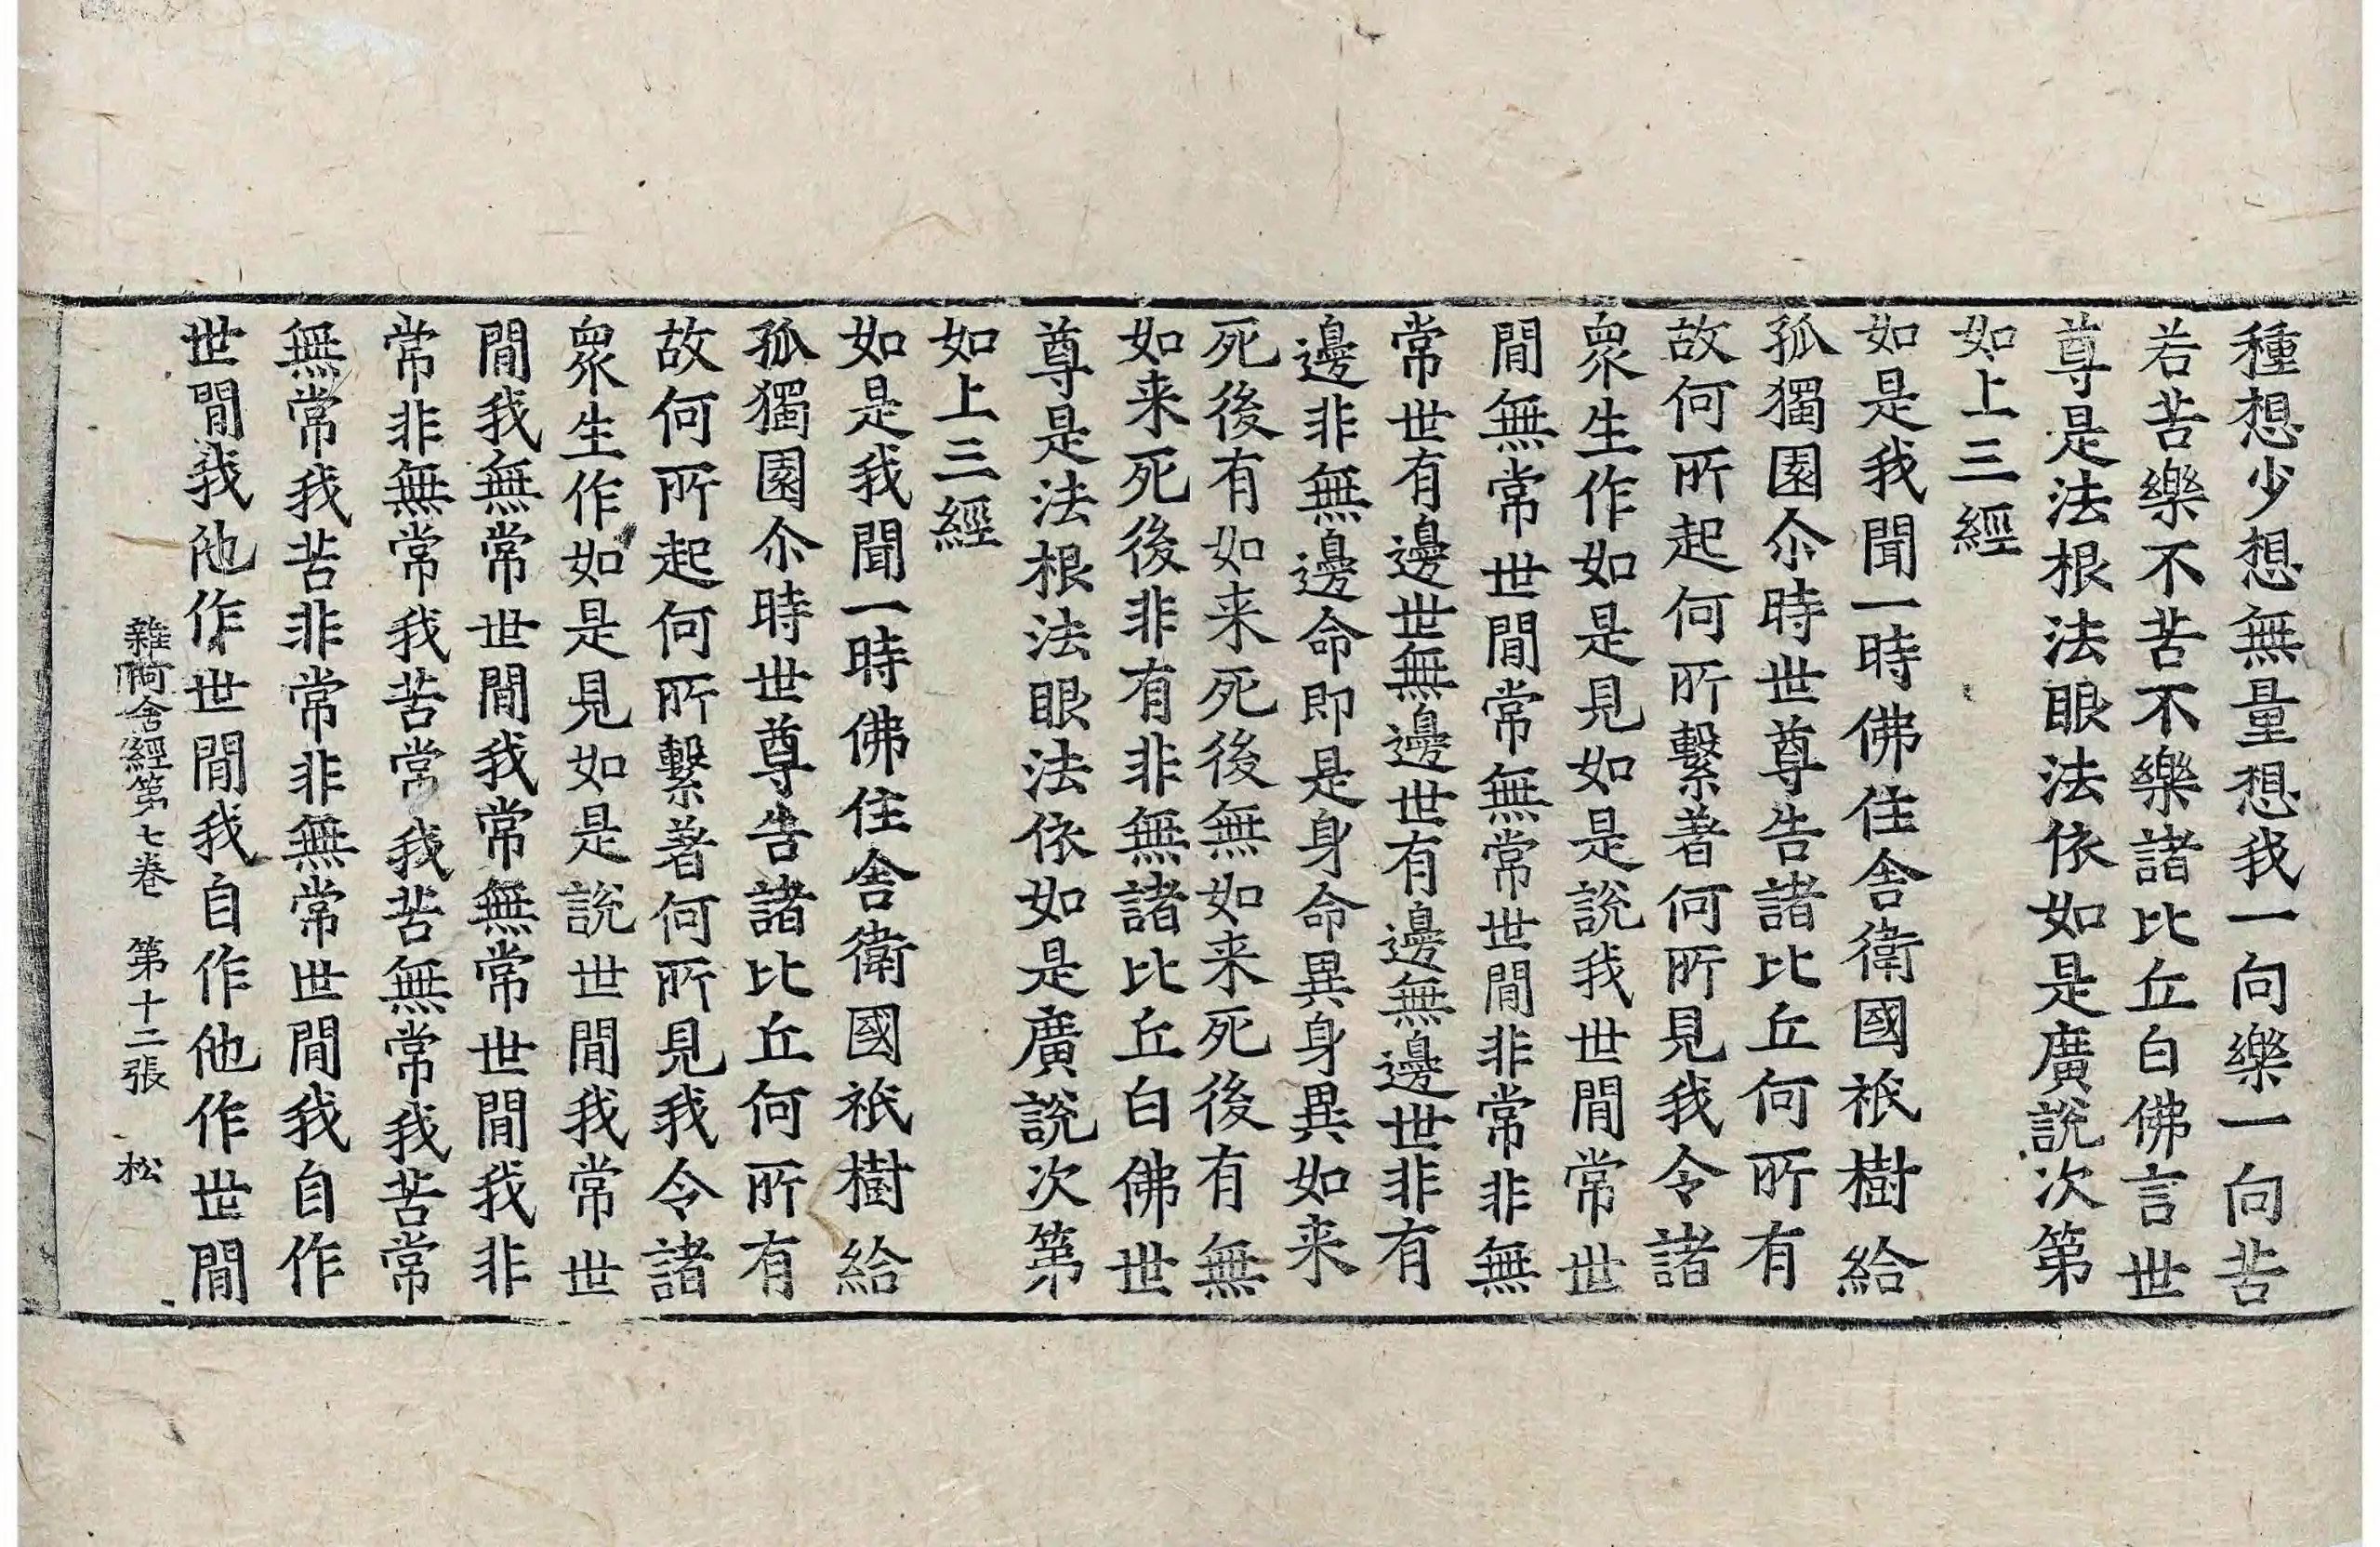 種想少想無量想我一向樂一向苦
若苦樂不苦不樂諸比丘白佛言世
尊是法根法眼法依如是廣說次第
如上三經
如是我聞一時佛住舍衛國祇樹給
孤獨園尒時世尊告諸比丘何所有
故何所起何所繫著何所見我令諸
衆生作如是見如是說我世間常世
間無常世間常無常世間非常非無
常世有邊世無邊世有邊無邊世非有
邊非無邊命即是身命異身異如来
死後有如来死後無如来死後有無
如来死後非有非無諸比丘白佛世
尊是法根法眼法依如是廣說次第
如上三經
如是我聞一時佛住舍衛國祇樹給
孤獨園尒時世尊告諸比丘何所有
故何所起何所繫著何所見我令諸
衆生作如是見如是說世間我常世
間我無常世間我常無常世間我非
常非無常我苦常我苦無常我苦常
無常我苦非常非無常世間我自作
世間我他作世間我自作他作世間
雜阿含經第七卷 第十二張 松